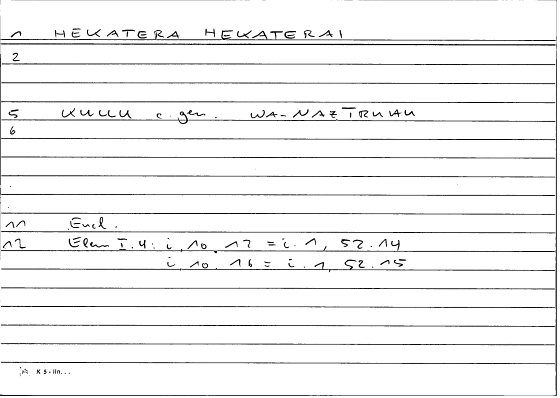 1 HEKATERA HEKATERAI
2
5 KULLU c. gen. WA-NAZĪRUHU
6
11 Eucl.
12 Elem I.4: i, 10. 12 = i. 1, 52.14
i, 10. 16 = i. 1, 52.15